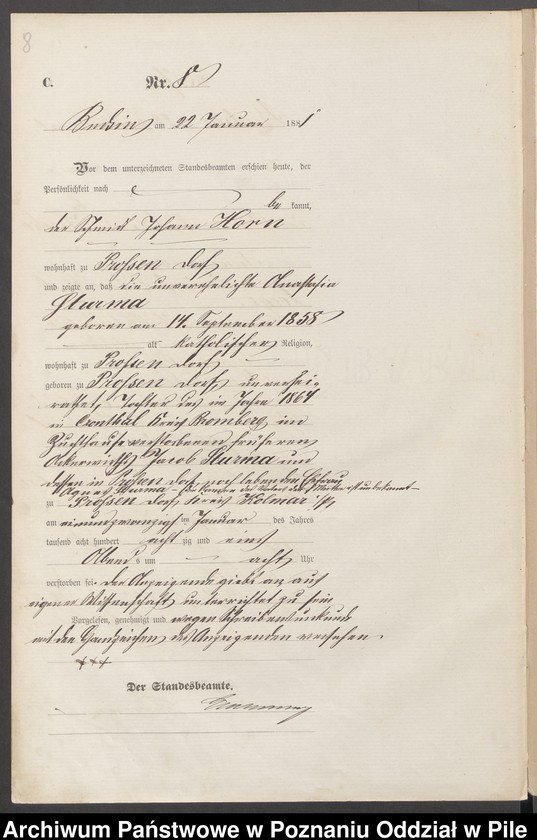 8
C. Nr. 8
Budsin am 22 Januar 1881
Vor dem unterzeichneten Standesbeamten erschien heute, der
Persönlichkeit nach
be kannt,
der Schmied Johann Horn
wohnhaft zu Prossen Dorf
und zeigte an, daß die unverehelichte Anastasia
Sturma
geboren am 14. September 1838
alt katholischer Religion,
wohnhaft zu Prossen Dorf
geboren zu Prossen Dorf, unverhei-
rathet, Tochter des im Jahre 1864
in Kreis Bromberg im
Zuchthause verstorbenen früheren
Ackerwirths Jacob Sturma und
dessen in Prossen Dorf noch lebenden Ehefrau
Agnes Sturma, der des Vaters der Mutter ist unbekannt
zu Prossen Dorf Kreis Kolmar i/P
am einundzwanzigsten Januar des Jahres
tausend acht hundert acht zig und eins
Abends um acht Uhr
verstorben sei. Der Anzeigende giebt an aus
eigener Wissenschaft unterrichtet zu sein
Vorgelesen, genehmigt und wegen Schreibensunkunde
mit den Handzeichen des Anzeigenden versehen
+++
Der Standesbeamte.
Archiwum Państwowe w Poznaniu Oddział w Pile